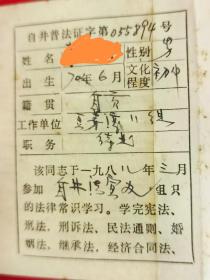 自井普法证字第055894号
姓名 性别 男
出生 70年6月 文化程度 初中
籍贯 自贡
工作单位
职务
该同志于一九八八年三月
参加 自井 组织
的法律常识学习。学完宪法、
刑法、刑诉法、民法通则、婚
姻法、继承法、经济合同法、